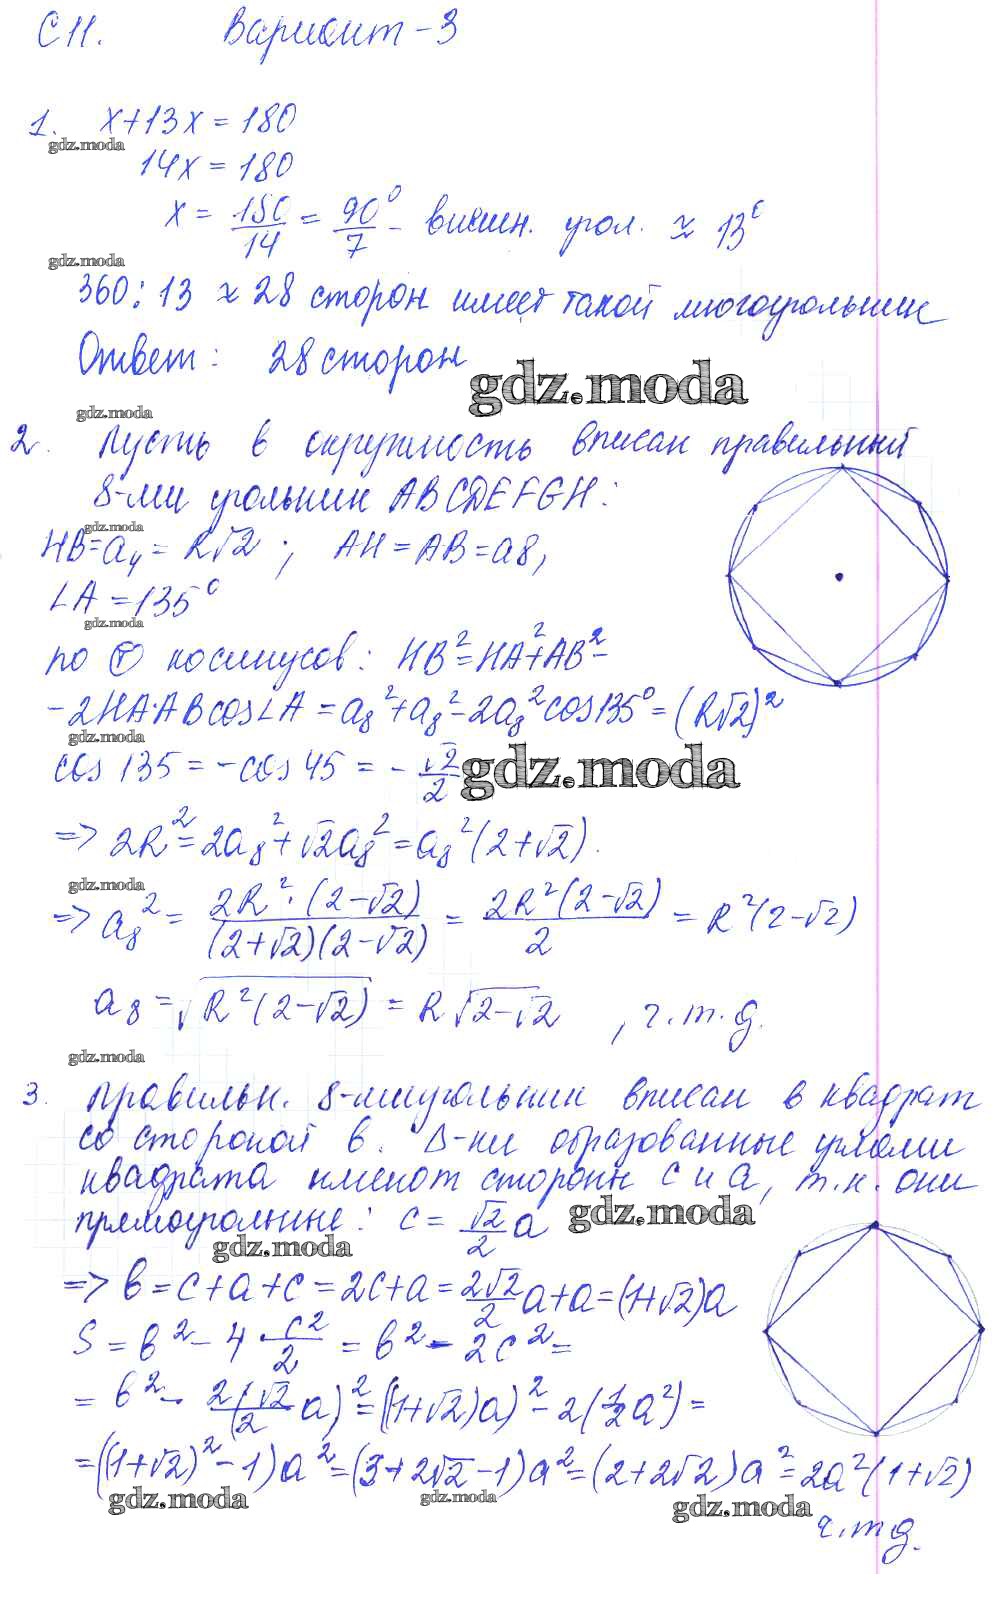 С 11. Вариант-3
1. x+13x = 180
gdz.moda
14x = 180
x = 180/14 = 90°/7 - внешн. угол. ≈ 13°
gdz.moda
360 : 13 ≈ 28 сторон имеет такой многоугольник
Ответ: 28 сторон
gdz.moda
gdz.moda
2. Пусть в окружность вписан правильный
8-ми угольник ABCDEFGH:
gdz.moda
HB = a₄ = R√2 ; AH = AB = a8,
∠A = 135°
gdz.moda
по Т косинусов: HB² = HA² + AB² -
- 2HA·AB cos∠A = a₈² + a₈² - 2a₈² cos135° = (R√2)²
gdz.moda
cos 135 = - cos 45 = - √2/2
gdz.moda
=> 2R² = 2a₈² + √2a₈² = a₈²(2+√2).
gdz.moda
=> a₈² = 2R²·(2-√2)/(2+√2)(2-√2) = 2R²(2-√2)/2 = R²(2-√2)
a₈ = √R²(2-√2) = R√2-√2 , ч.т.д.
gdz.moda
3. Правильн. 8-миугольник вписан в квадрат
со стороной b. Δ-ки образованные углами
квадрата имеют стороны c и a, т.к. они
прямоугольные: c = √2/2 a
gdz.moda
gdz.moda
=> b = c + a + c = 2c + a = 2√2/2 a + a = (1+√2)a
S = b² - 4 · c²/2 = b² - 2c² =
= b² - 2(√2/2 a)² = ((1+√2)a)² - 2(1/2 a²) =
= ((1+√2)² - 1)a² = (3+2√2-1)a² = (2+2√2)a² = 2a²(1+√2)
gdz.moda gdz.moda gdz.moda
ч.т.д.